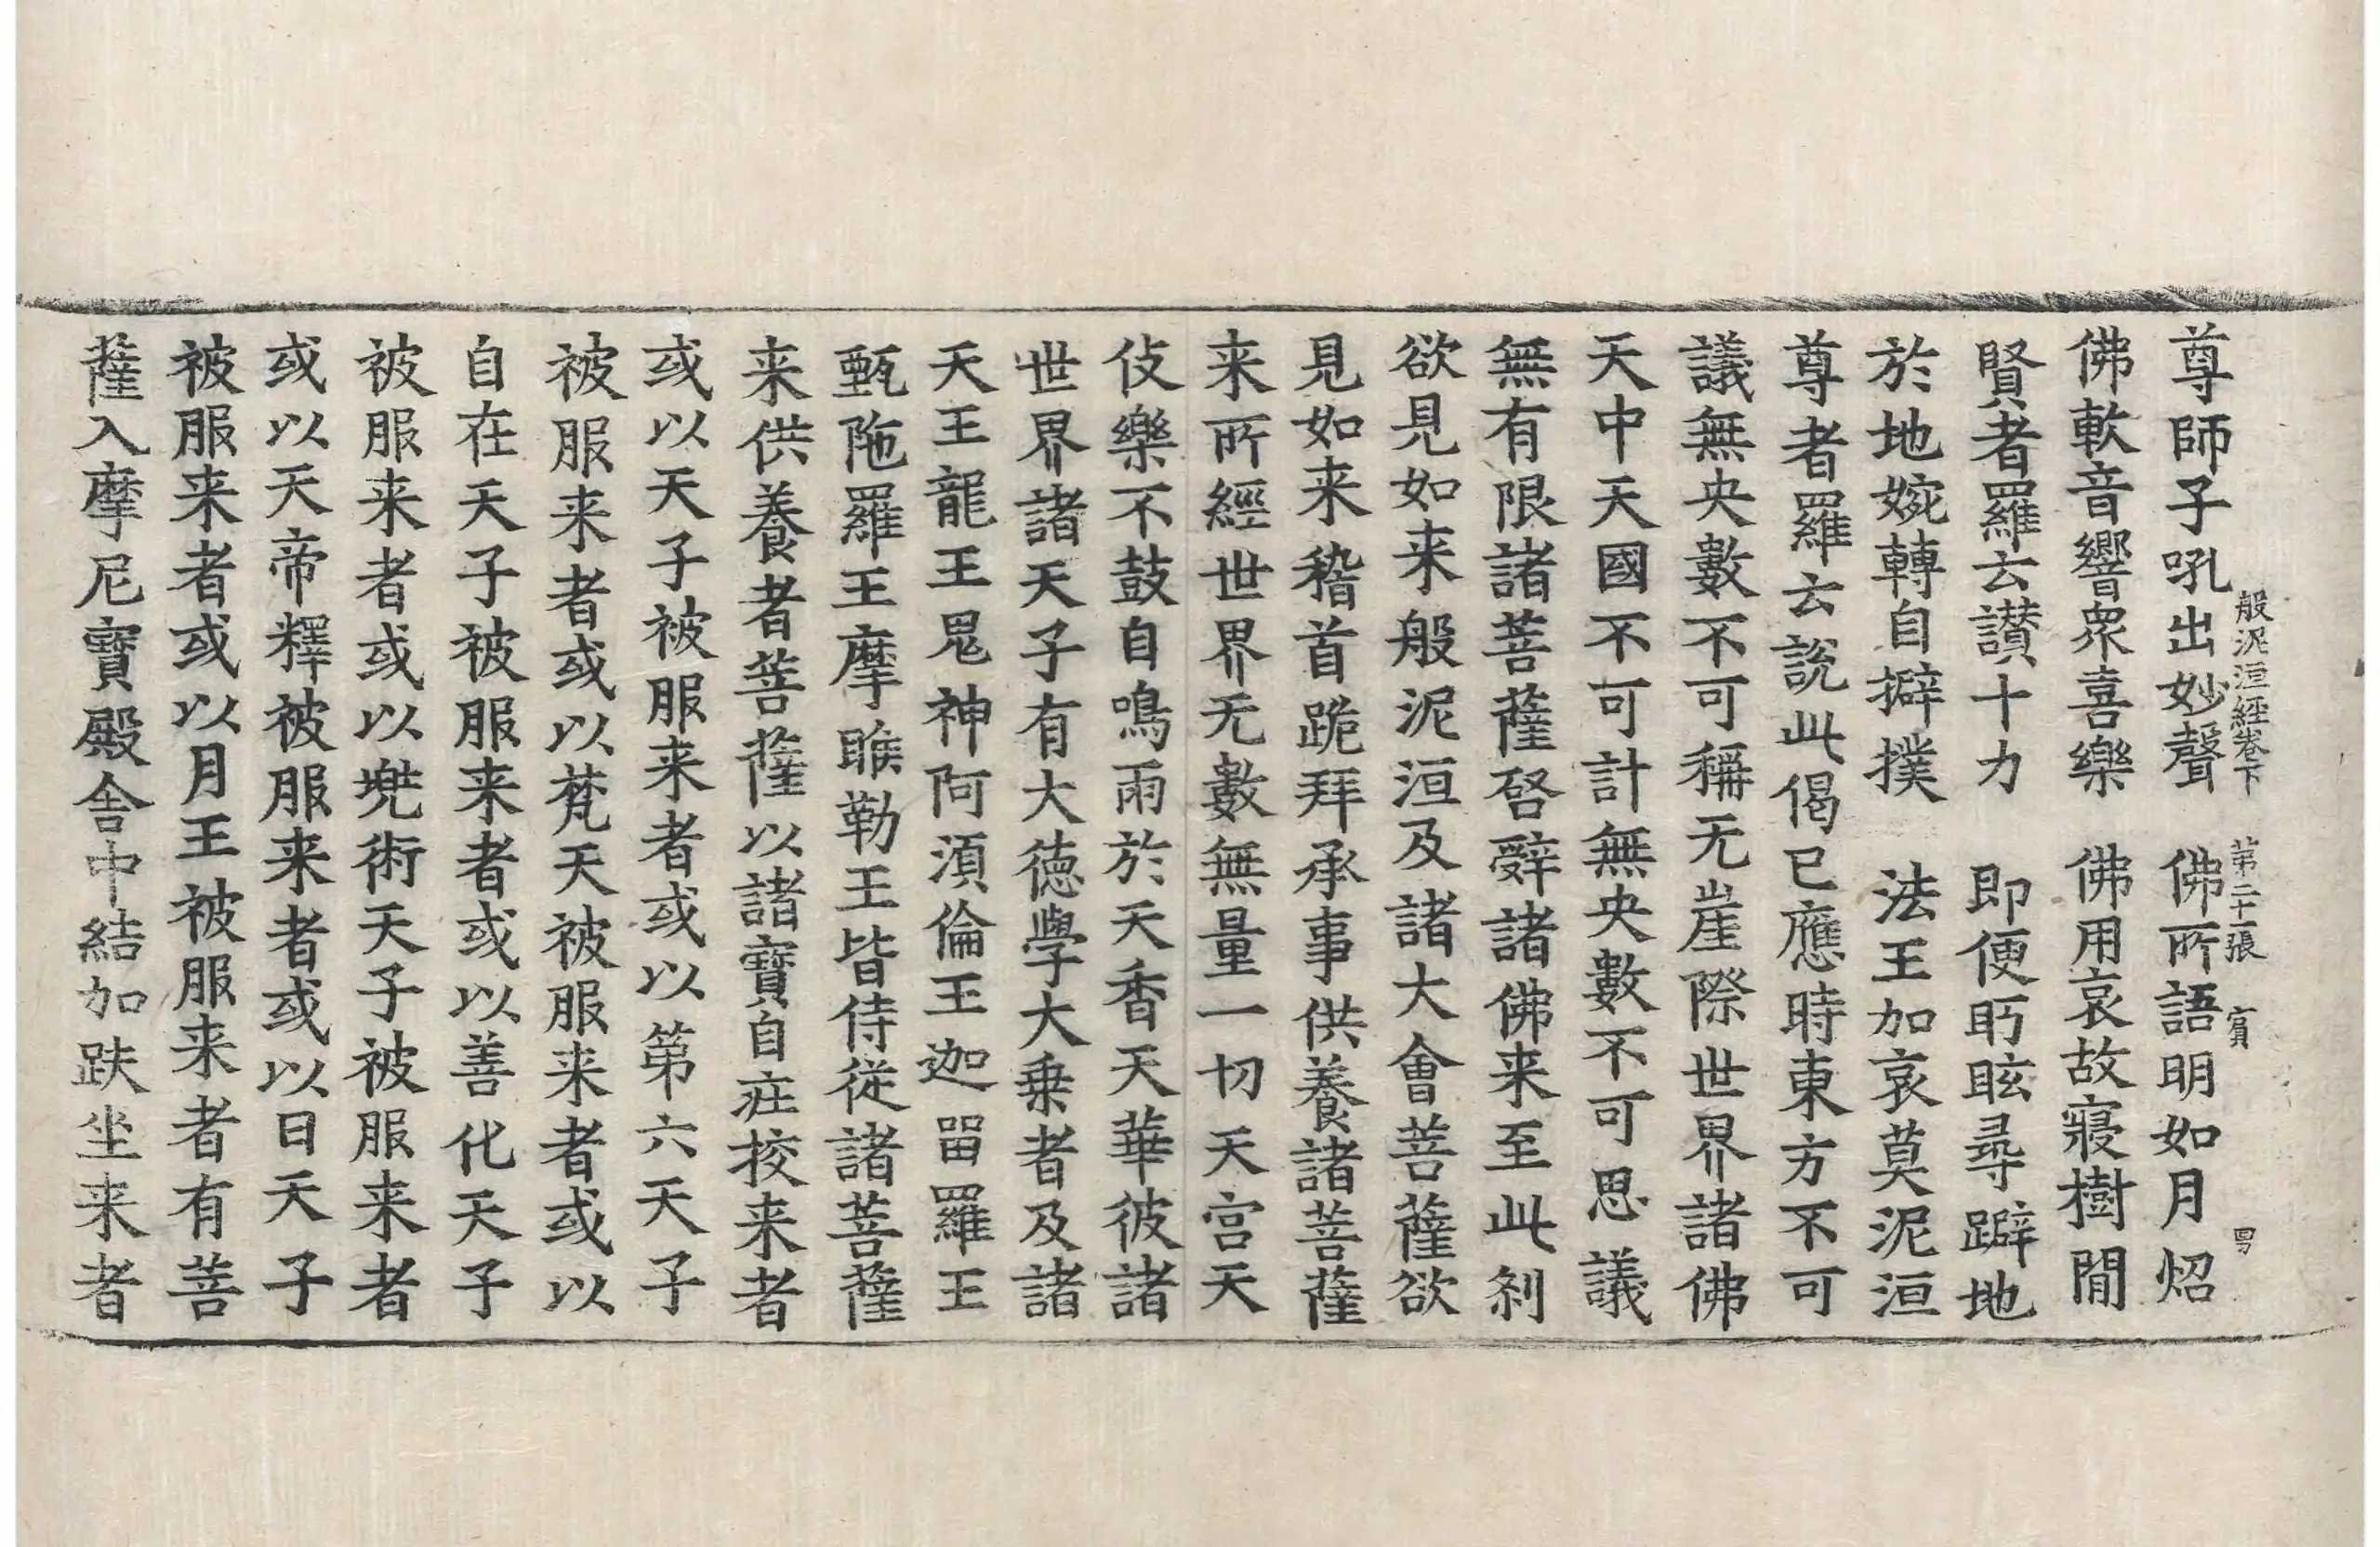 般泥洹經卷下　第二十一張　賓
尊師子吼出妙聲　佛所語明如月炤
佛軟音響衆喜樂　佛用哀故寢樹閒
賢者羅云讃十力　即便眄眩尋躃地
於地婉轉自擗撲　法王加哀莫泥洹
尊者羅云說此偈已應時東方不可
議無央數不可稱无崖際世界諸佛
天中天國不可計無央數不可思議
無有限諸菩薩啓辝諸佛来至此剎
欲見如来般泥洹及諸大會菩薩欲
見如来稽首跪拜承事供養諸菩薩
来所經世界无數無量一切天宮天
伎樂不鼓自鳴雨於天香天華彼諸
世界諸天子有大德學大乗者及諸
天王龍王鬼神阿須倫王迦留羅王
甄陁羅王摩睺勒王皆侍從諸菩薩
来供養者菩薩以諸寶自庄挍来者
或以天子被服来者或以第六天子
被服来者或以梵天被服来者或以
自在天子被服来者或以善化天子
被服来者或以兠術天子被服来者
或以天帝釋被服来者或以日天子
被服来者或以月王被服来者有菩
薩入摩尼寶殿舍中結加趺坐来者